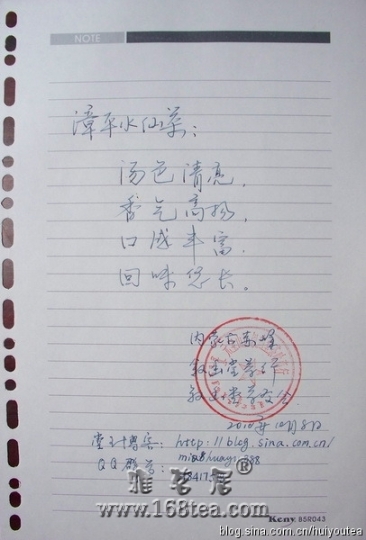 NOTE
漳平水仙茶：
汤色清亮，
香气高扬，
口感丰富，
回味悠长。
内蒙古赤峰
2010年10月8日
堂主博客：http://blog.sina.com.cn/
QQ群号：
推茗居®
www.168tea.com
Keny B5R043
blog.sina.com.cn/huiyoutea